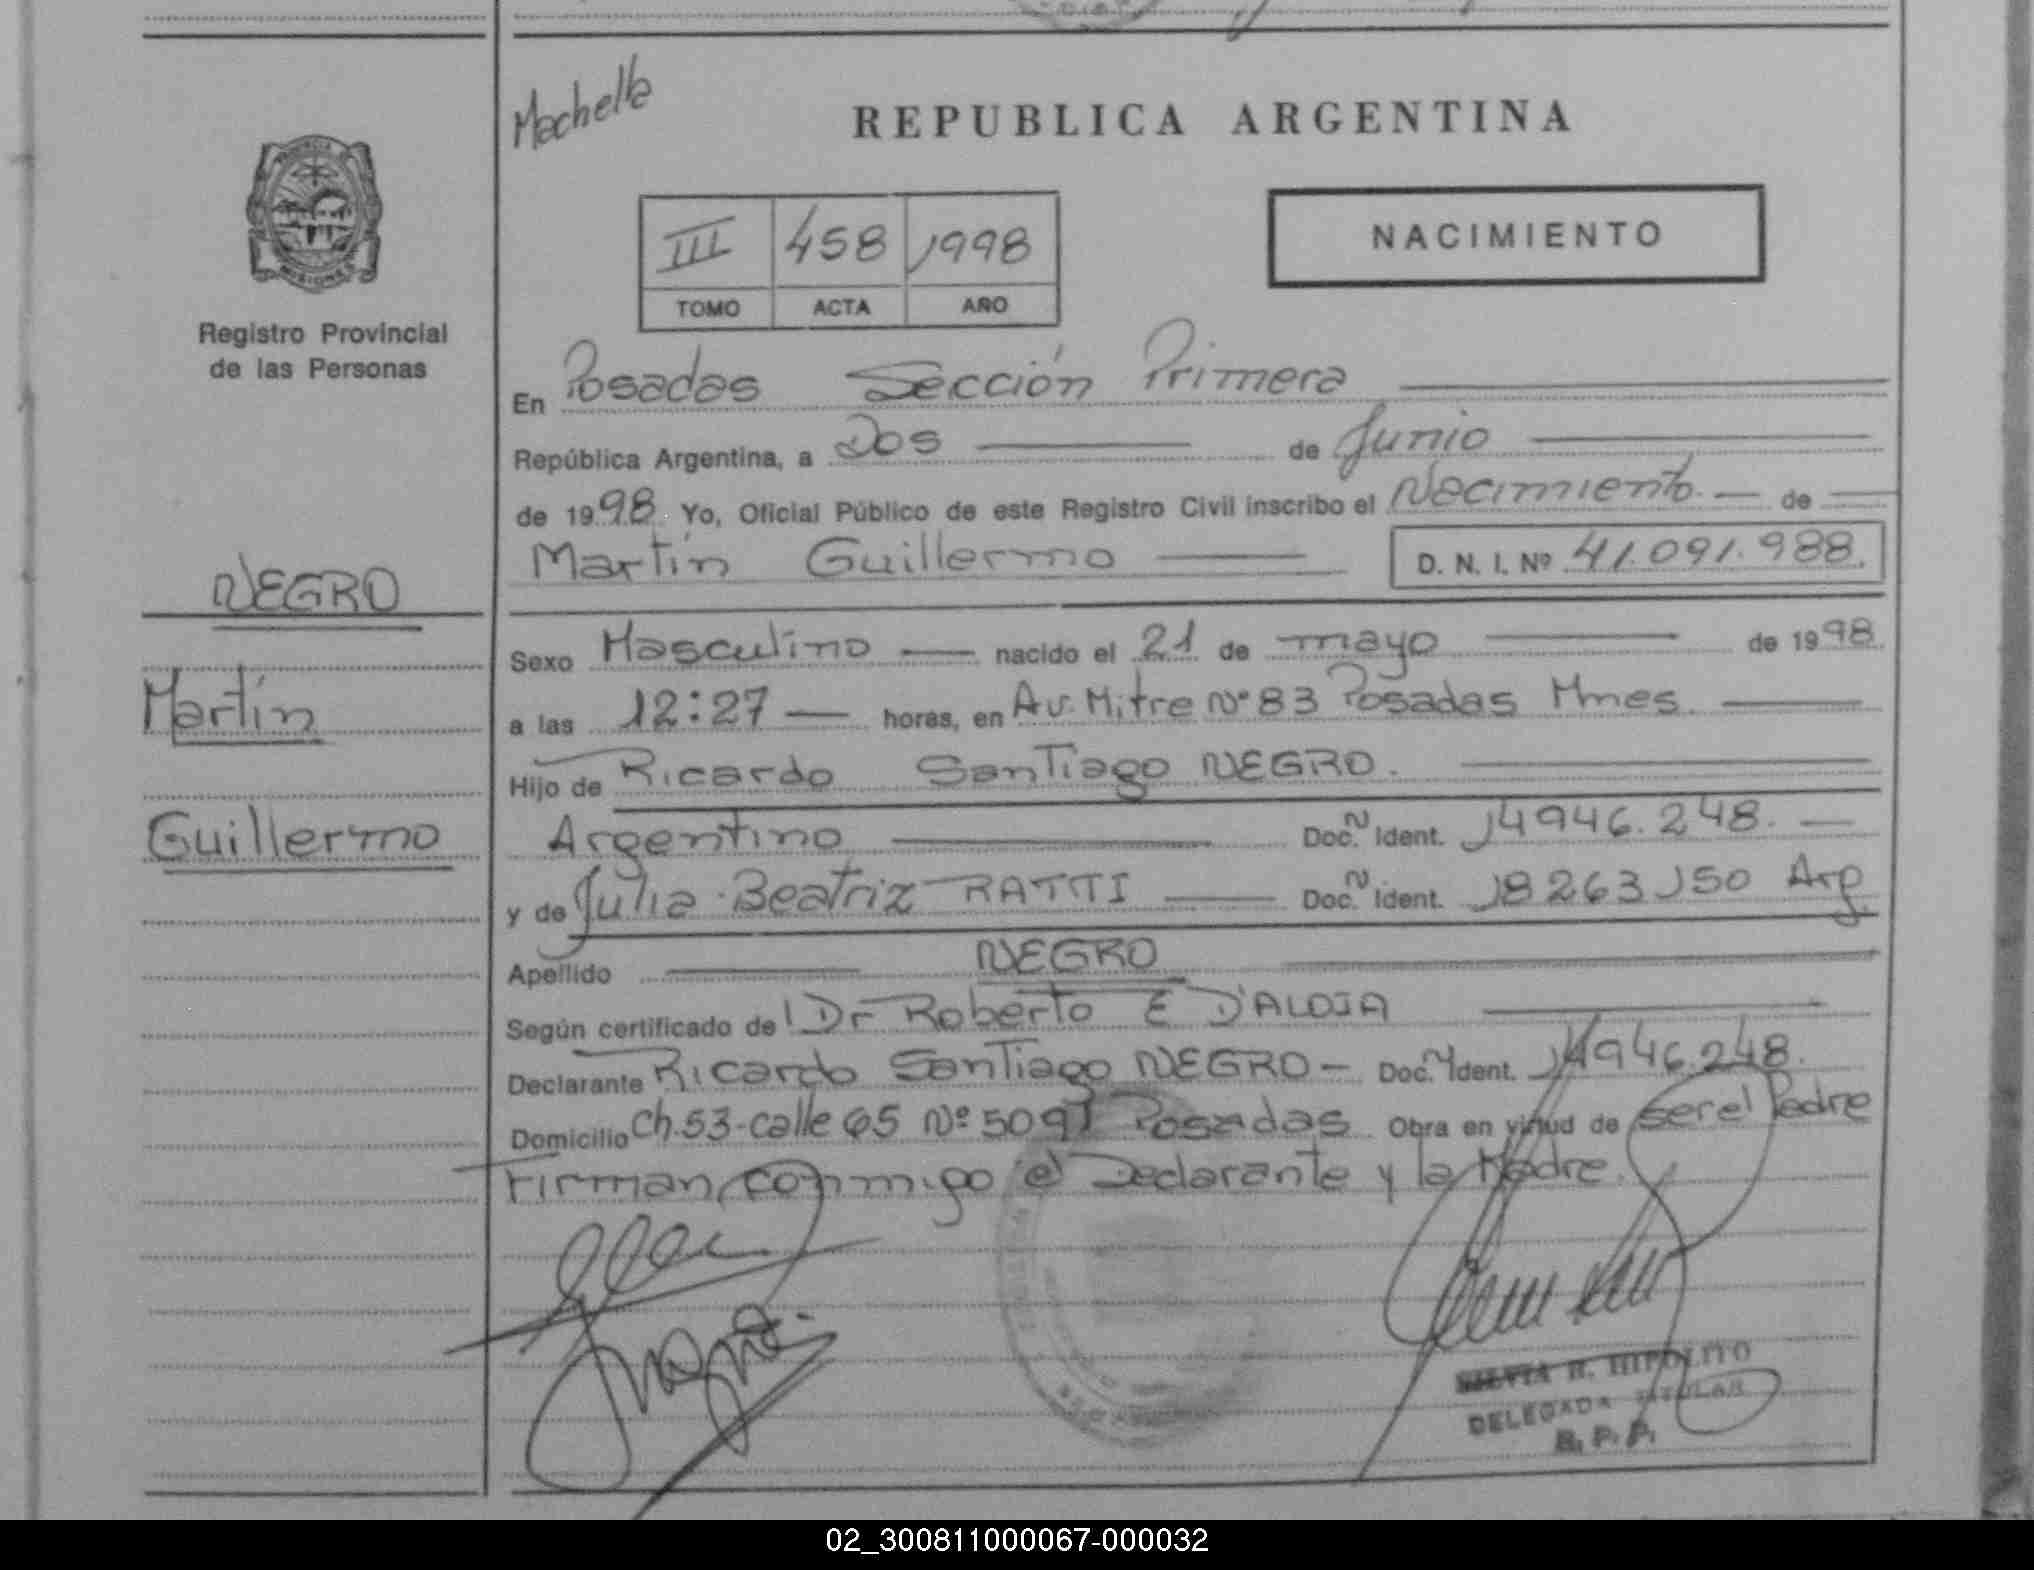 Machella
REPUBLICA ARGENTINA
PROVINCIA DE
MISIONES
III 458 1998
TOMO ACTA AÑO
NACIMIENTO
Registro Provincial
de las Personas
En Posadas Sección Primera
República Argentina, a Dos de Junio
de 1998 Yo, Oficial Público de este Registro Civil inscribo el Nacimiento. de
Martín Guillermo D. N. I. Nº 41.091.988.
NEGRO
Martín
Guillermo
Sexo Masculino nacido el 21 de mayo de 1998
a las 12:27 horas, en Av. Mitre Nº 83 Posadas Mnes.
Hijo de Ricardo Santiago NEGRO.
Argentino Doc. N Ident. 14946.248.
y de Julia Beatriz RATTI Doc. N Ident. 18263150 Arg.
Apellido NEGRO
Según certificado de Dr Roberto E D'ALOJA
Declarante Ricardo Santiago NEGRO - Doc. N Ident. 14946.248.
Domicilio Ch. 53-calle 65 Nº 5091 Posadas Obra en virtud de ser el Padre
Firman conmigo el Declarante y la Madre.
SILVIA R. HIPOLITO
DELEGADA TITULAR
R. P. P.
02_300811000067-000032